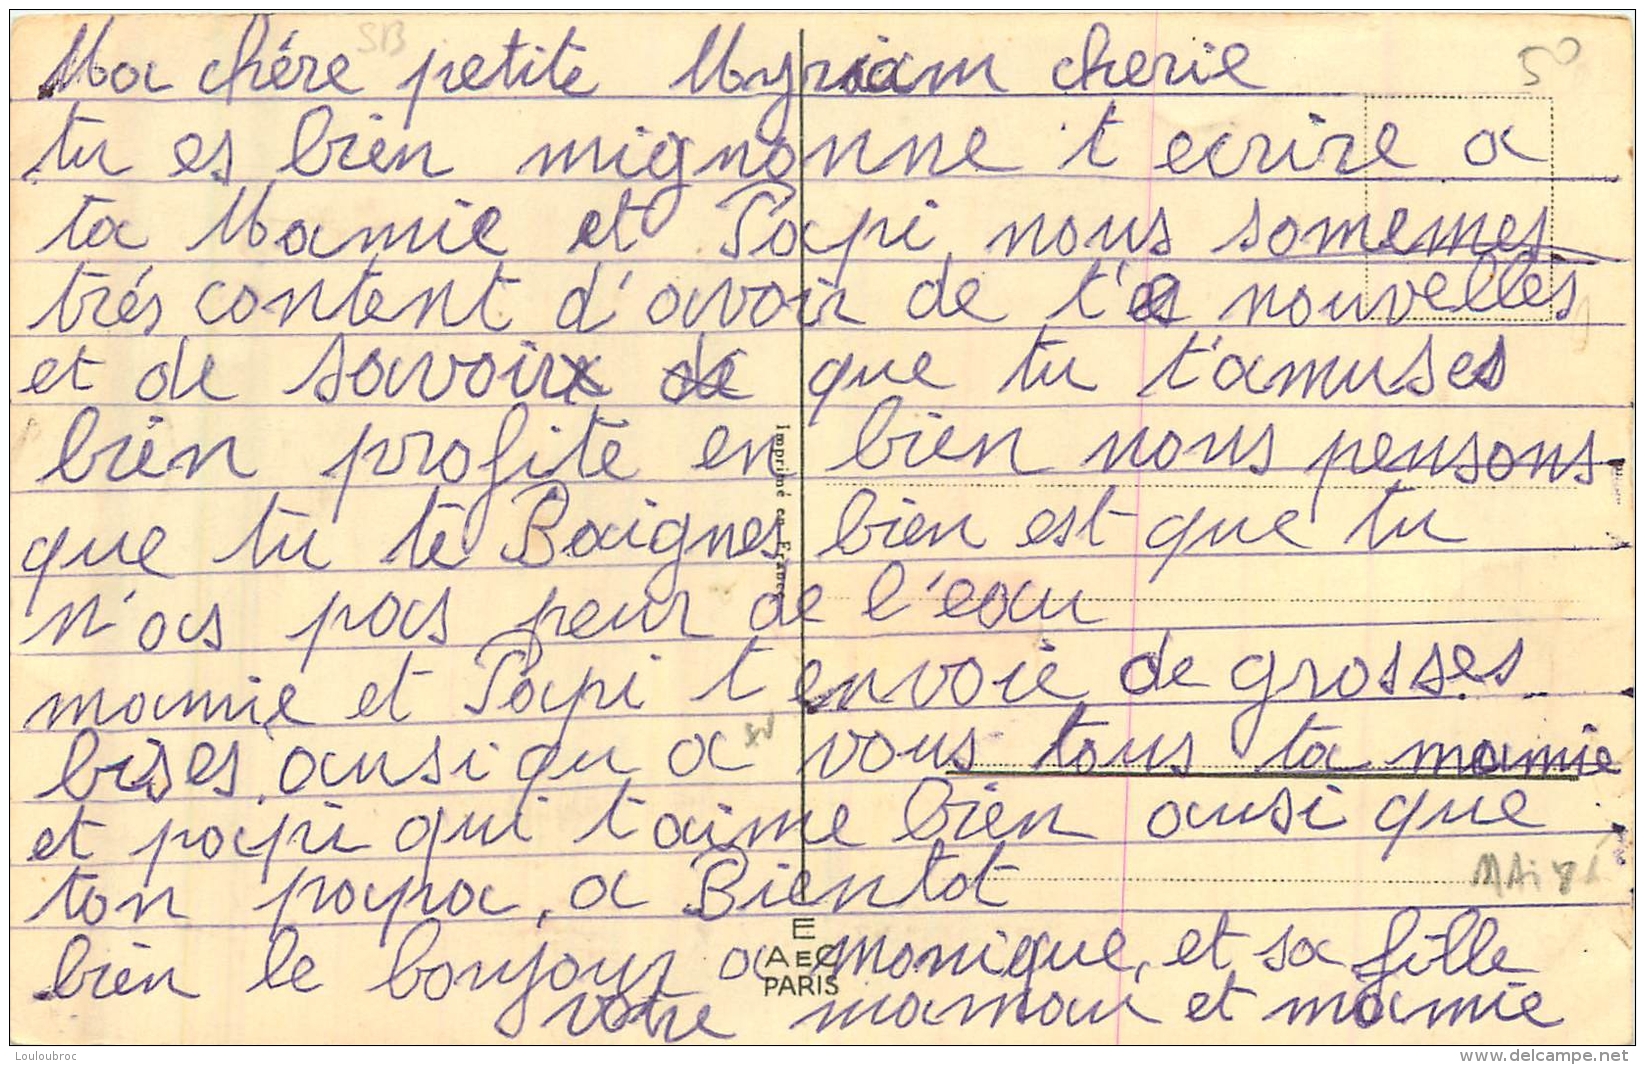 Ma chére petite Myriam cherie
tu es bien mignonne t ecrire a
ta Mamie et Papi nous somemes
trés content d'avoir de t'es nouvelles
et de savoir de que tu t'amuses
bien profite en bien nous pensons
que tu te Baignes bien est que tu
n'as pas peur de l'eau
mamie et Papi t envoie de grosses
bises, ausi qu a vous tous ta mamie
et papi qui t aime bien ausi que
ton papa, a Bientot
bien le bonjour a monique, et sa fille
votre maman et mamie
50
SB
MAI 86
Imprimé en France
E
AEC
PARIS
Louloubroc
www.delcampe.net